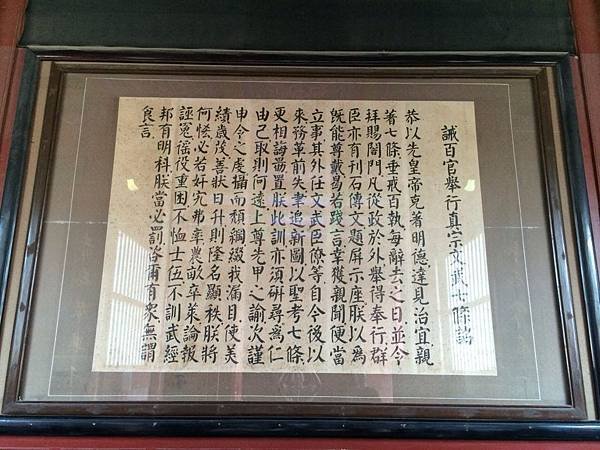 誡百官舉行真宗文武七條詔
恭以先皇帝克著明德達見治宜親
著七條垂戒百執每辭去之日並令
拜賜閤門凡從政於外舉得奉行群
臣亦有刊石傳文題屏示座朕以為
既能尊戴曷若踐言幸獲親聞便當
立事其外任文武臣僚等自今後以
來務革前失聿追新圖以聖考七條
更相誨勗置朕此訓亦須研尋為仁
由己取則何遠上尊先甲之諭次謹
申令之虔攝而頹綱綴我漏目使美
績歲改善狀日升則隆名顯秩朕將
何恡必若奸宄弗率農畝卒萊論報
誣冤徭役重困不恤士伍不訓武經
邦有明科朕當必罰咨爾有眾無謂
食言